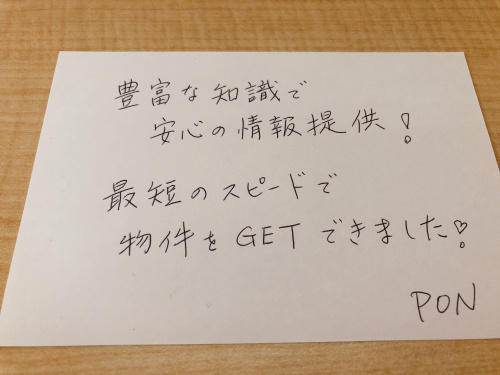 豊富な知識で
安心の情報提供!
最短のスピードで
物件をGETできました!
PON